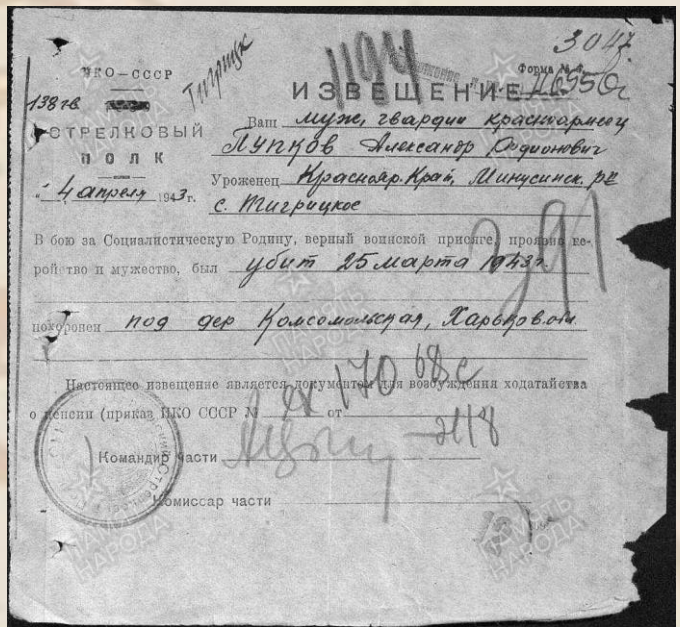 3047.
1194
Тигрицк
НКО—СССР
Форма № 4
138 гв.
ИЗВЕЩЕНИЕ
СТРЕЛКОВЫЙ
ПОЛК
Ваш муж, гвардии красноармеец
Пупков Александр Родионович
„4 апреля 1943 г.
Уроженец Краснояр. Край, Минусинск. р-н
с. Тигрицкое
В бою за Социалистическую Родину, верный воинской присяге, проявив ге-
ройство и мужество, был убит 25 марта 1943 г
291
похоронен под дер Комсомольская, Харьков. обл.
Настоящее извещение является документом для возбуждения ходатайства
о пенсии (приказ НКО СССР № от
170 68с
Командир части
Комиссар части
ПАМЯТЬ
НАРОДА